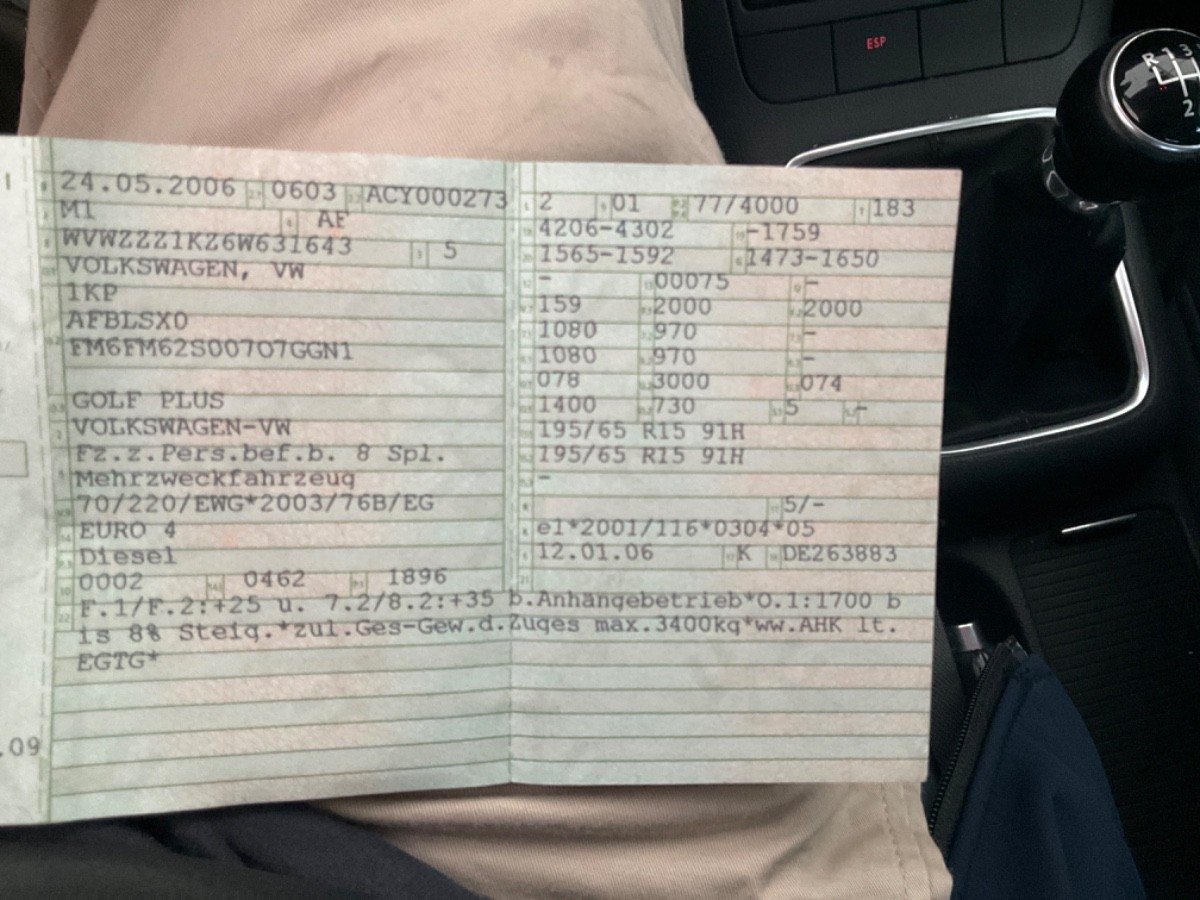 24.05.2006 0603 ACY000273
M1 AF
WVWZZZ1KZ6W631643 5
VOLKSWAGEN, VW
1KP
AFBLSX0
FM6FM62S007O7GGN1
GOLF PLUS
VOLKSWAGEN-VW
Fz.z.Pers.bef.b. 8 Spl.
Mehrzweckfahrzeug
70/220/EWG*2003/76B/EG
EURO 4
Diesel
0002 0462 1896
2 01 77/4000 183
4206-4302 -1759
1565-1592 1473-1650
- 00075 -
159 2000 2000
1080 970 -
1080 970 -
078 3000 074
1400 730 5 -
195/65 R15 91H
195/65 R15 91H
-
5/-
e1*2001/116*0304*05
12.01.06 K DE263883
F.1/F.2:+25 u. 7.2/8.2:+35 b.Anhängebetrieb*O.1:1700 b
is 8% Steig.*zul.Ges-Gew.d.Zuges max.3400kg*ww.AHK lt.
EGTG*
.09
ESP
R 1 3
2